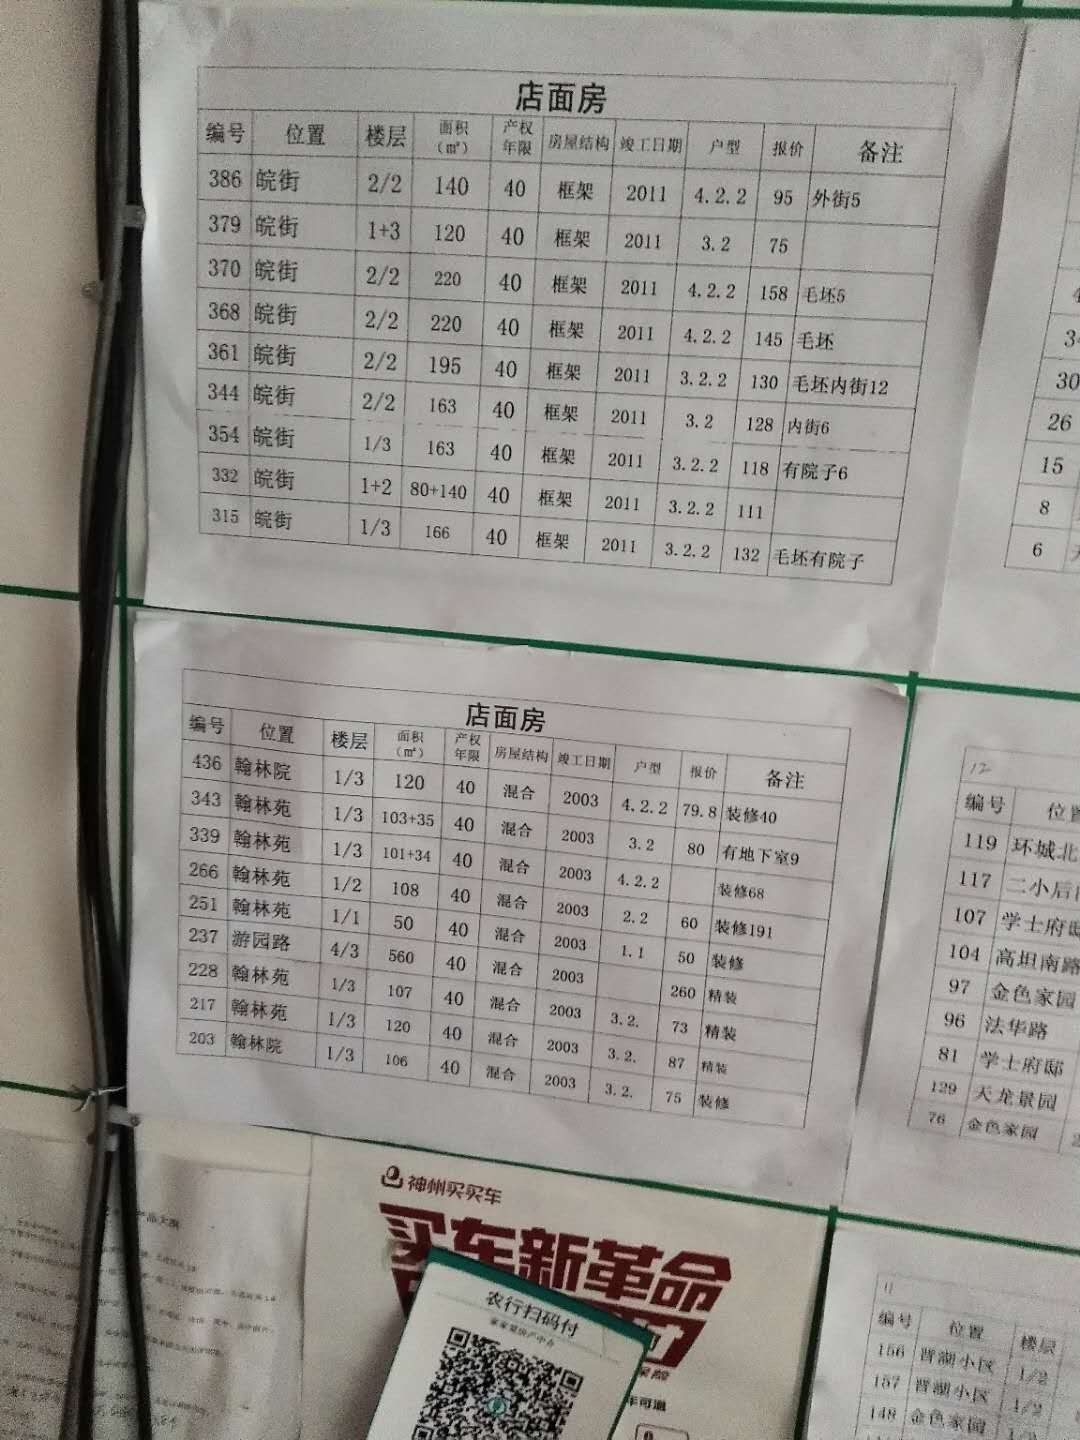 店面房
编号 位置 楼层 面积（㎡） 产权年限 房屋结构 竣工日期 户型 报价 备注
386 皖街 2/2 140 40 框架 2011 4.2.2 95 外街5
379 皖街 1+3 120 40 框架 2011 3.2 75
370 皖街 2/2 220 40 框架 2011 4.2.2 158 毛坯5
368 皖街 2/2 220 40 框架 2011 4.2.2 145 毛坯
361 皖街 2/2 195 40 框架 2011 3.2.2 130 毛坯内街12
344 皖街 2/2 163 40 框架 2011 3.2 128 内街6
354 皖街 1/3 163 40 框架 2011 3.2.2 118 有院子6
332 皖街 1+2 80+140 40 框架 2011 3.2.2 111
315 皖街 1/3 166 40 框架 2011 3.2.2 132 毛坯有院子
34
30
26
15
8
6
店面房
编号 位置 楼层 面积（㎡） 产权年限 房屋结构 竣工日期 户型 报价 备注
436 翰林院 1/3 120 40 混合 2003 4.2.2 79.8 装修40
343 翰林苑 1/3 103+35 40 混合 2003 3.2 80 有地下室9
339 翰林苑 1/3 101+34 40 混合 2003 4.2.2 装修68
266 翰林苑 1/2 108 40 混合 2003 2.2 60 装修191
251 翰林苑 1/1 50 40 混合 2003 1.1 50 装修
237 游园路 4/3 560 40 混合 2003 260 精装
228 翰林苑 1/3 107 40 混合 2003 3.2. 73 精装
217 翰林苑 1/3 120 40 混合 2003 3.2. 87 精装
203 翰林院 1/3 106 40 混合 2003 3.2. 75 装修
12
编号 位置
119 环城北
117 二小后
107 学士府邸
104 高坦南路
97 金色家园
96 法华路
81 学士府邸
129 天龙景园
76 金色家园
神州买买车
买车新革命
农行扫码付
11
编号 位置 楼层
156 晋湖小区 1/2
157 晋湖小区 1/2
148 金色家园